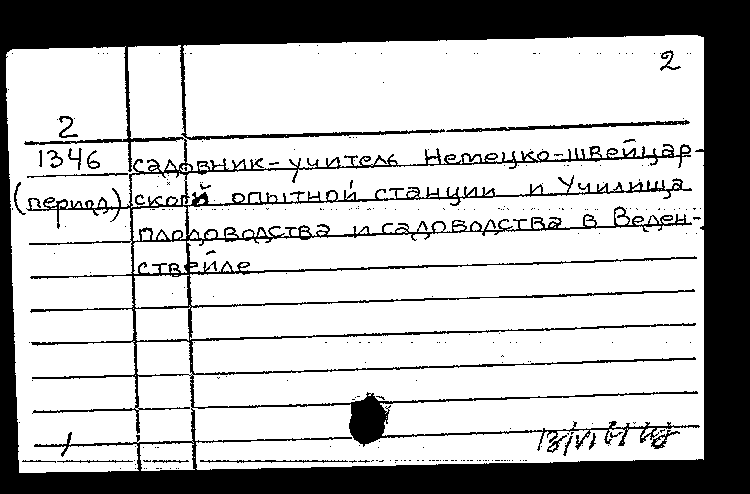 2
2
1346 садовник-учитель Немецко-швейцар-
(период) ской опытной станции и Училища
плодоводства и садоводства в Веден-
ствейле